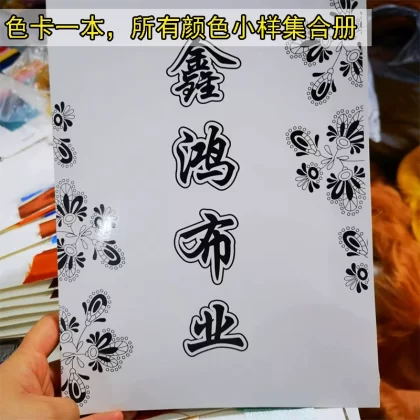 色卡一本，所有颜色小样集合册
鑫
鸿
布
业